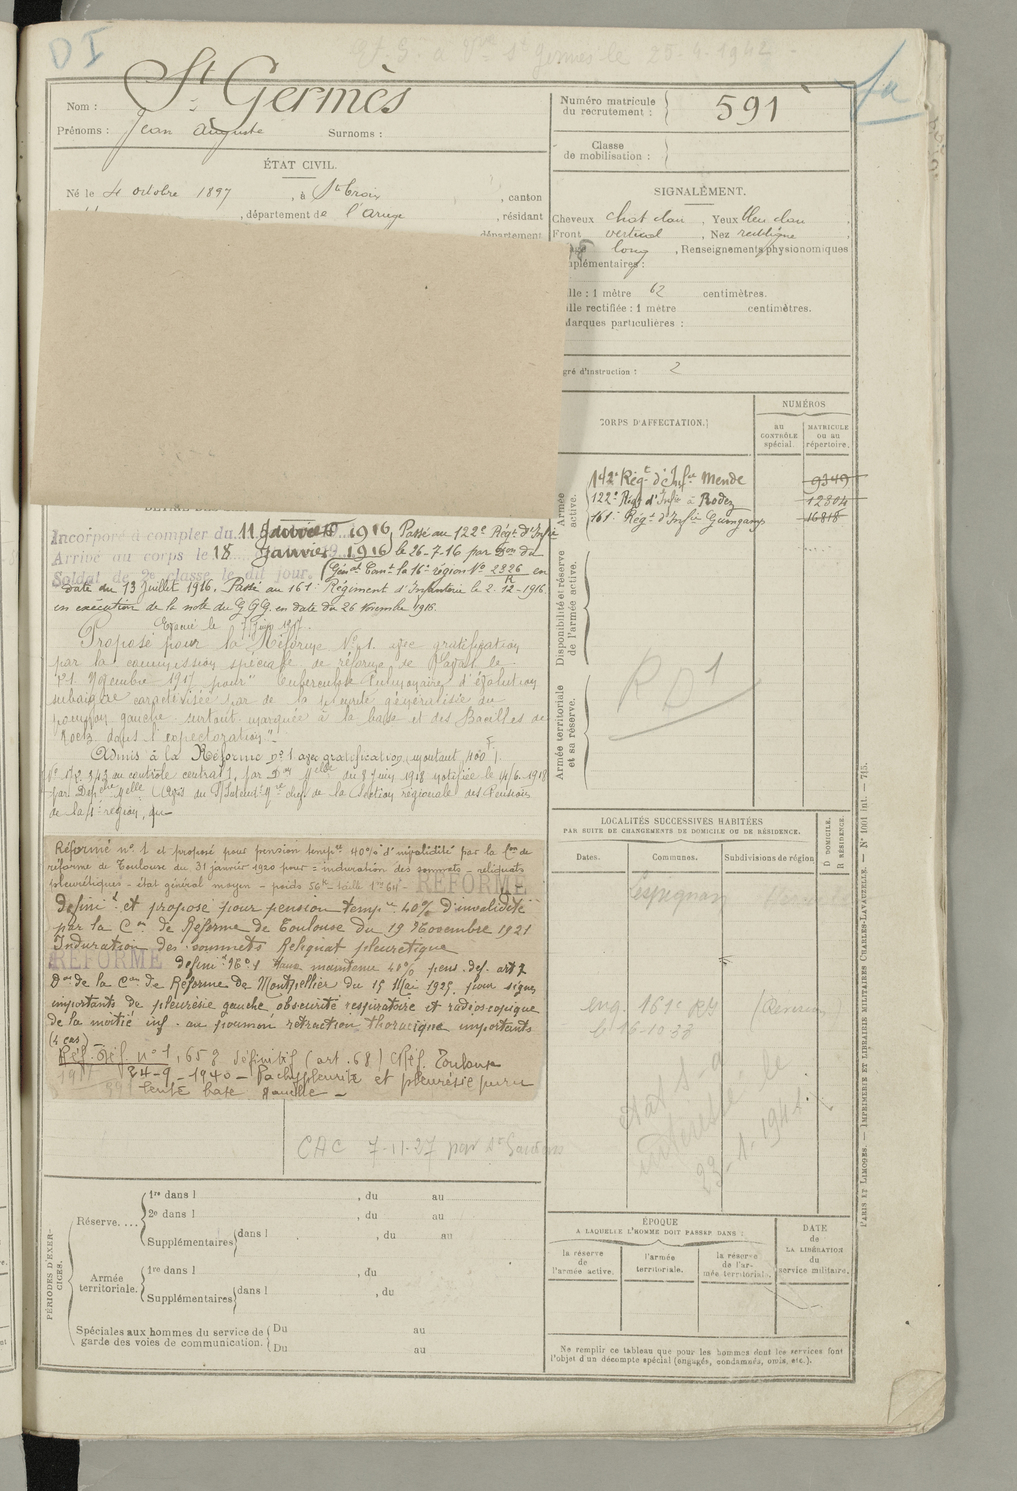 D I
Et. S. à Vve St Germès le 25-4-1942
St Germès
Nom :
Prénoms : Jean Auguste Surnoms :
Numéro matricule du recrutement : 591
Classe de mobilisation :
ÉTAT CIVIL.
Né le 4 octobre 1897, à Ste Croix, canton
, département de l'Ariège, résidant
département
SIGNALÉMENT.
Cheveux chat clair, Yeux bleu clair,
Front vertical, Nez rectiligne,
long, Renseignements physionomiques
plémentaires :
lle : 1 mètre 62 centimètres.
lle rectifiée : 1 mètre centimètres.
Marques particulières :
gré d'instruction : 2
CORPS D'AFFECTATION.
NUMÉROS
au CONTRÔLE spécial.
MATRICULE ou au répertoire.
Armée active.
142e Régt d'Infie Mende 9349
122e Régt d'Infie à Rodez 12804
161e Régt d'Infie Guingamp 16818
Disponibilité et réserve de l'armée active.
Armée territoriale et sa réserve.
R D 1
Incorporé à compter du 11 Janvier 1916, Passé au 122e Régt d'Infie
Arrivé au corps le 18 Janvier 1916 le 26-7-16 par
Soldat de 2e classe le dit jour. Génal Comt la 16e région No 2326 en
R
date du 13 Juillet 1916. Passé au 161e Régiment d'Infanterie le 2-12-1916
en exécution de la note du G.Q.G. en date du 26 Novembre 1916.
Proposé pour la Réforme No 1 avec gratification
par la commission spéciale de réforme de
1917 pour "tuberculose Pulmonaire d'évolution
subaigüe caractérisée par de la généralisée du
poumon gauche surtout marquée à la base et des Bacilles de
Koch dans l'expectoration".
Admis à la Réforme no 1 avec gratification (montant 400 F).
au contrôle central, par Don Melle du 8 Juin 1918 notifiée le 14/6-1918
de la section régionale des Pensions
de la région, du
Réformé no 1 et proposé pour pension tempre 40% d'invalidité par la Con de
réforme de Toulouse du 31 janvier 1920 pour : induration des sommets - reliquats
pleurétiques - état général moyen - poids 56k taille 1m64 - RÉFORMÉ
définit et proposé pour pension tempre 40% d'invalidité
par la Con de Réforme de Toulouse du 19 Novembre 1921
Induration des sommets Reliquat pleurétique
RÉFORMÉ définit No 1 maintenu 40% pens. def. art 7
Don de la Con de Réforme de Montpellier du 15 Mai 1925 pour signes
importants de pleurésie gauche obscurité respiratoire et radioscopique
de la moitié inf. du poumon rétraction thoracique importants
(4 cas)
Réf. Déf. no 1, 65% définitif (art. 68) CRéf. Toulouse
24-9-1940 - Pachypleurite et pleurésie puru
lente base gauche -
CAC 7-11-27 par St Gaudens
LOCALITÉS SUCCESSIVES HABITÉES
PAR SUITE DE CHANGEMENTS DE DOMICILE OU DE RÉSIDENCE.
Dates. Communes. Subdivisions de région
D DOMICILE. R RÉSIDENCE.
Lespignan
161e RI
le 16-10-33
état S-a
intéressé le
23-1-1942
PÉRIODES D'EXERCICES.
Réserve....
1re dans l , du au
2e dans l , du au
Supplémentaires dans l , du au
Armée territoriale.
1re dans l , du
Supplémentaires dans l , du
Spéciales aux hommes du service de garde des voies de communication.
Du au
Du au
ÉPOQUE
A LAQUELLE L'HOMME DOIT PASSER DANS :
la réserve de l'armée active.
l'armée territoriale.
la réserve de l'armée territoriale.
DATE de LA LIBÉRATION du service militaire.
Ne remplir ce tableau que pour les hommes dont les services font
l'objet d'un décompte spécial (engagés, condamnés, omis, etc.).
PARIS ET LIMOGES. — IMPRIMERIE ET LIBRAIRIE MILITAIRES CHARLES-LAVAUZELLE. — No 1001 int. — 715.